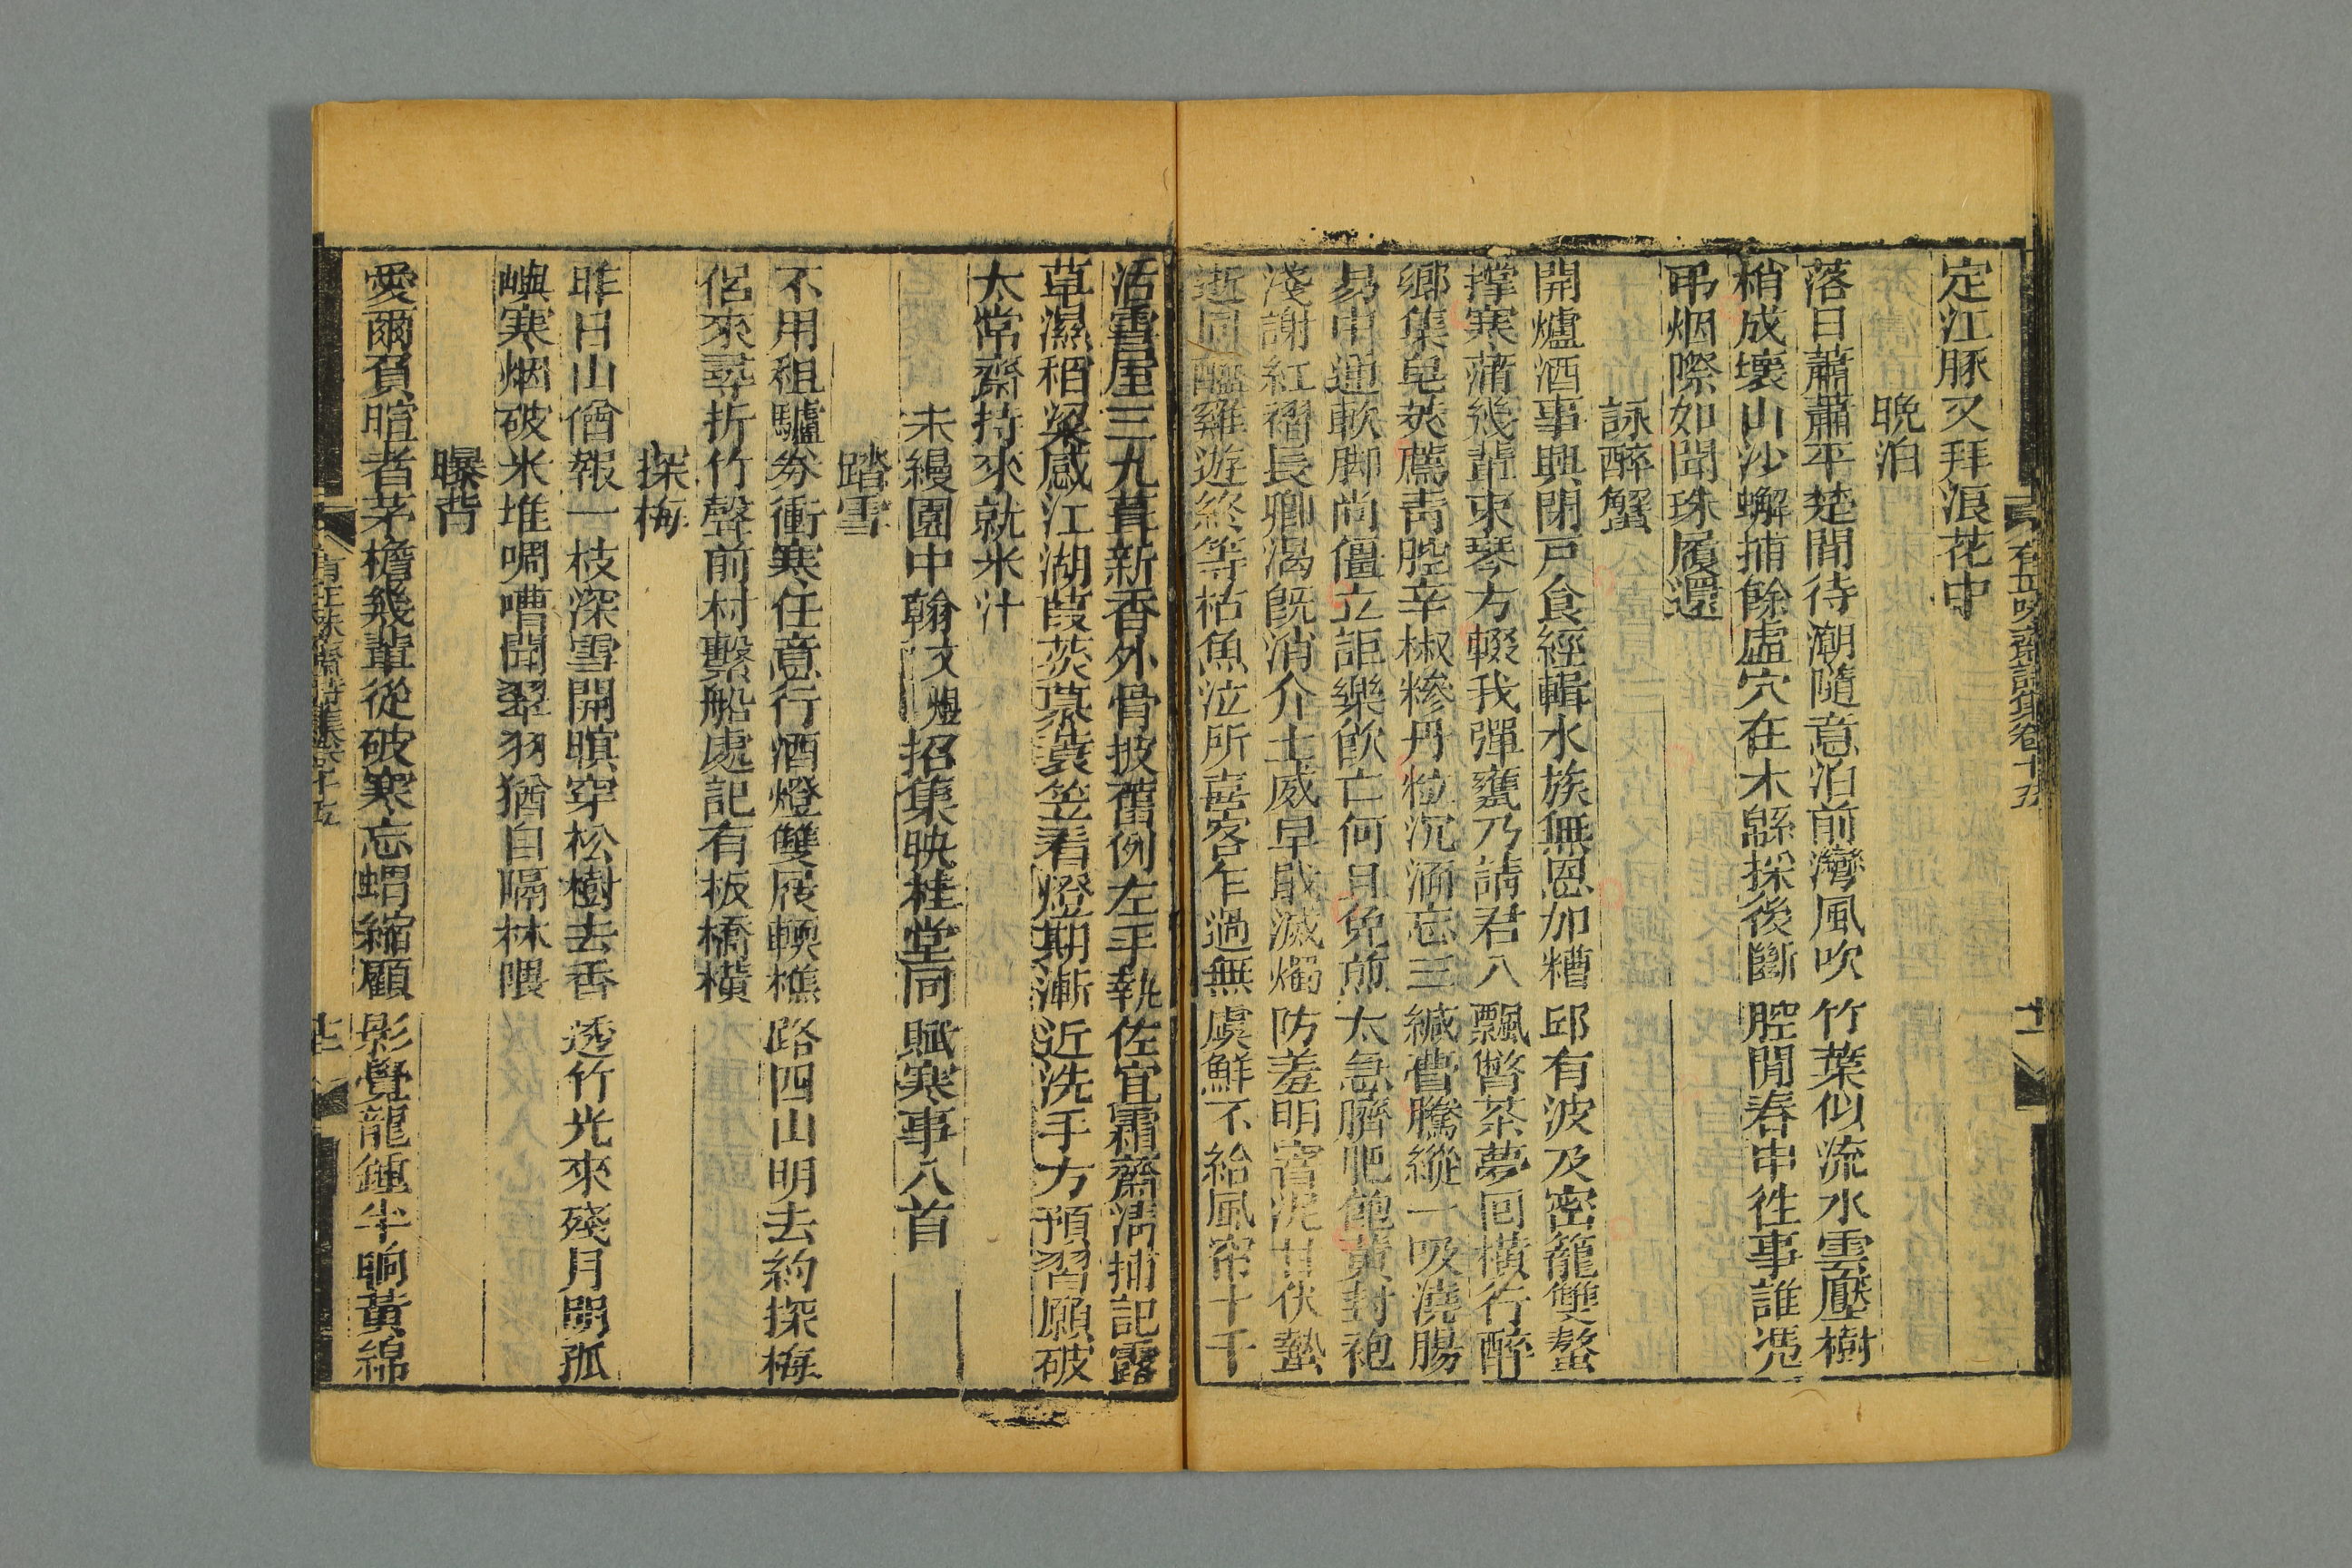 有正味齋詩集卷十五
定江豚又拜浪花中
晚泊
落日蕭蕭平楚間待潮隨意泊前灣風吹竹葉似流水雲壓樹
梢成壞山沙蠏捕餘虛穴在木緜採後斷腔閒春申徃事誰憑
弔烟際如聞珠履還
詠醉蟹
開爐酒事興閉戸食經輯水族無恩加糟邱有波及密籠雙螯
撑寒蒲幾輩束琴方輟我彈甕乃請君八飄瞥茶夢回橫行醉
鄉集皂莢薦靑腔辛椒糝丹粒沉湎忘三緘瞢騰縱一吸澆腸
易中通軟脚尚僵立詎樂飮亡何且免煎太急臍肥飽黃封袍
淺謝紅褶長卿渴旣消介士威早戢滅燭防羞明窨泥甘伏蟄
逝同醯雞遊終等枯魚泣所喜客乍過無虞鮮不給風帘十千
活雪屋三九葺新香外骨披舊例左手執佐宜霜齏淸捕記露
草濕稻粱感江湖葭菼慕蓑笠看燈期漸近洗手方預習願破
太常齋持來就米汁
未縵園中翰文焜招集映桂堂同賦寒事八首
踏雪
不用租驢劵衝寒任意行酒燈雙屐輭樵路四山明去約探梅
侶來尋折竹聲前村繫船處記有板橋橫
探梅
昨日山僧報一枝深雪開暝穿松樹去香透竹光來殘月明孤
嶼寒烟破米堆啁嘈聞翠羽猶自隔林隈
曝背
愛爾負暄者茅檐幾輩從破寒忘蝟縮顧影覺龍鍾半晌黃綿
有正味齋詩集卷十五